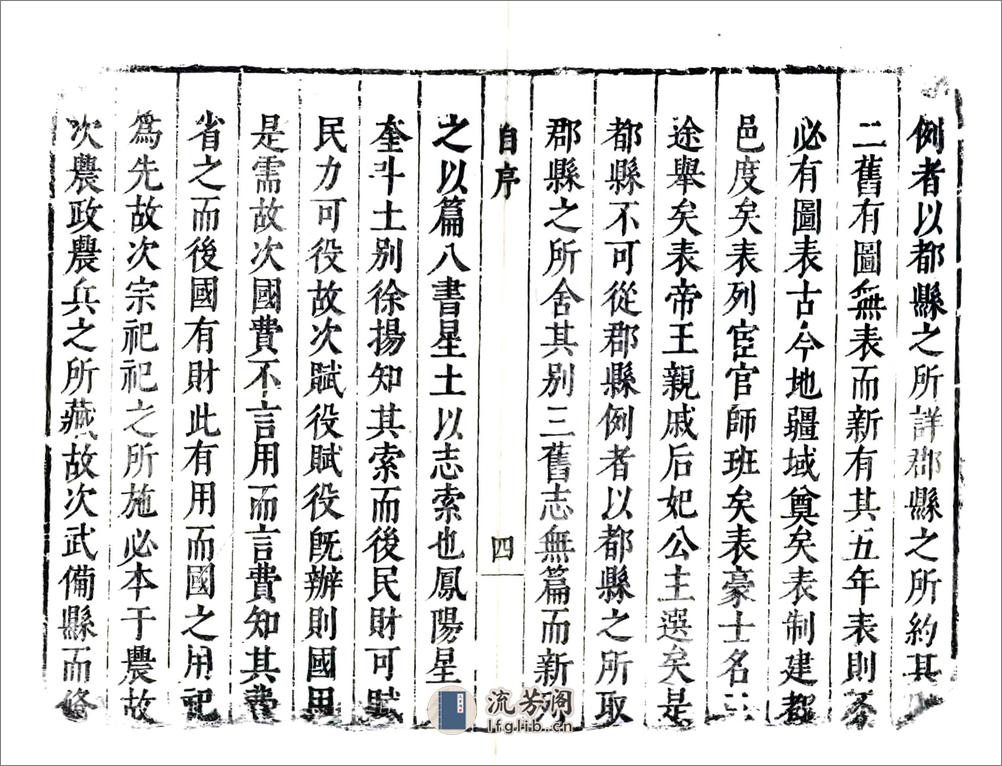 例者以都縣之所詳郡縣之所約其
二舊有圖無表而新有其五年表則
必有圖表古今地疆域奠矣表制建都
邑度矣表列宦官師班矣表豪士名
途舉矣表帝王親戚后妃公主選矣是
都縣不可從郡縣例者以都縣之所取
郡縣之所舍其別三舊志無篇而新
自序
四
之以篇八書星土以志索也鳳陽星
奎斗土别徐揚知其索而後民財可賦
民力可役故次賦役賦役既辦則國用
是需故次國費不言用而言費知其費
省之而後國有財此有用而國之用祀
為先故次宗祀祀之所施必本于農故
次農政農兵之所藏故次武備縣而
流芳阁
lfglib.cn